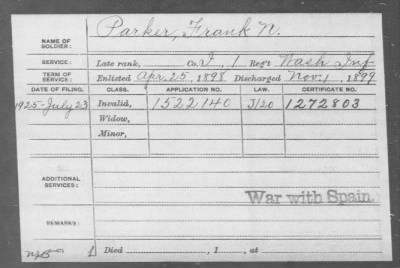 NAME OF SOLDIER: Parker, Frank N.
SERVICE: Late rank, Co. I, 1 Reg't Wash Inf
TERM OF SERVICE: Enlisted Apr. 25, 1898 Discharged Nov. 1, 1899
DATE OF FILING. CLASS. APPLICATION NO. LAW. CERTIFICATE NO.
1925-July 23 Invalid, 1522140 J/20 1272803
Widow,
Minor,
ADDITIONAL SERVICES:
War with Spain.
REMARKS:
Died , 1 , at